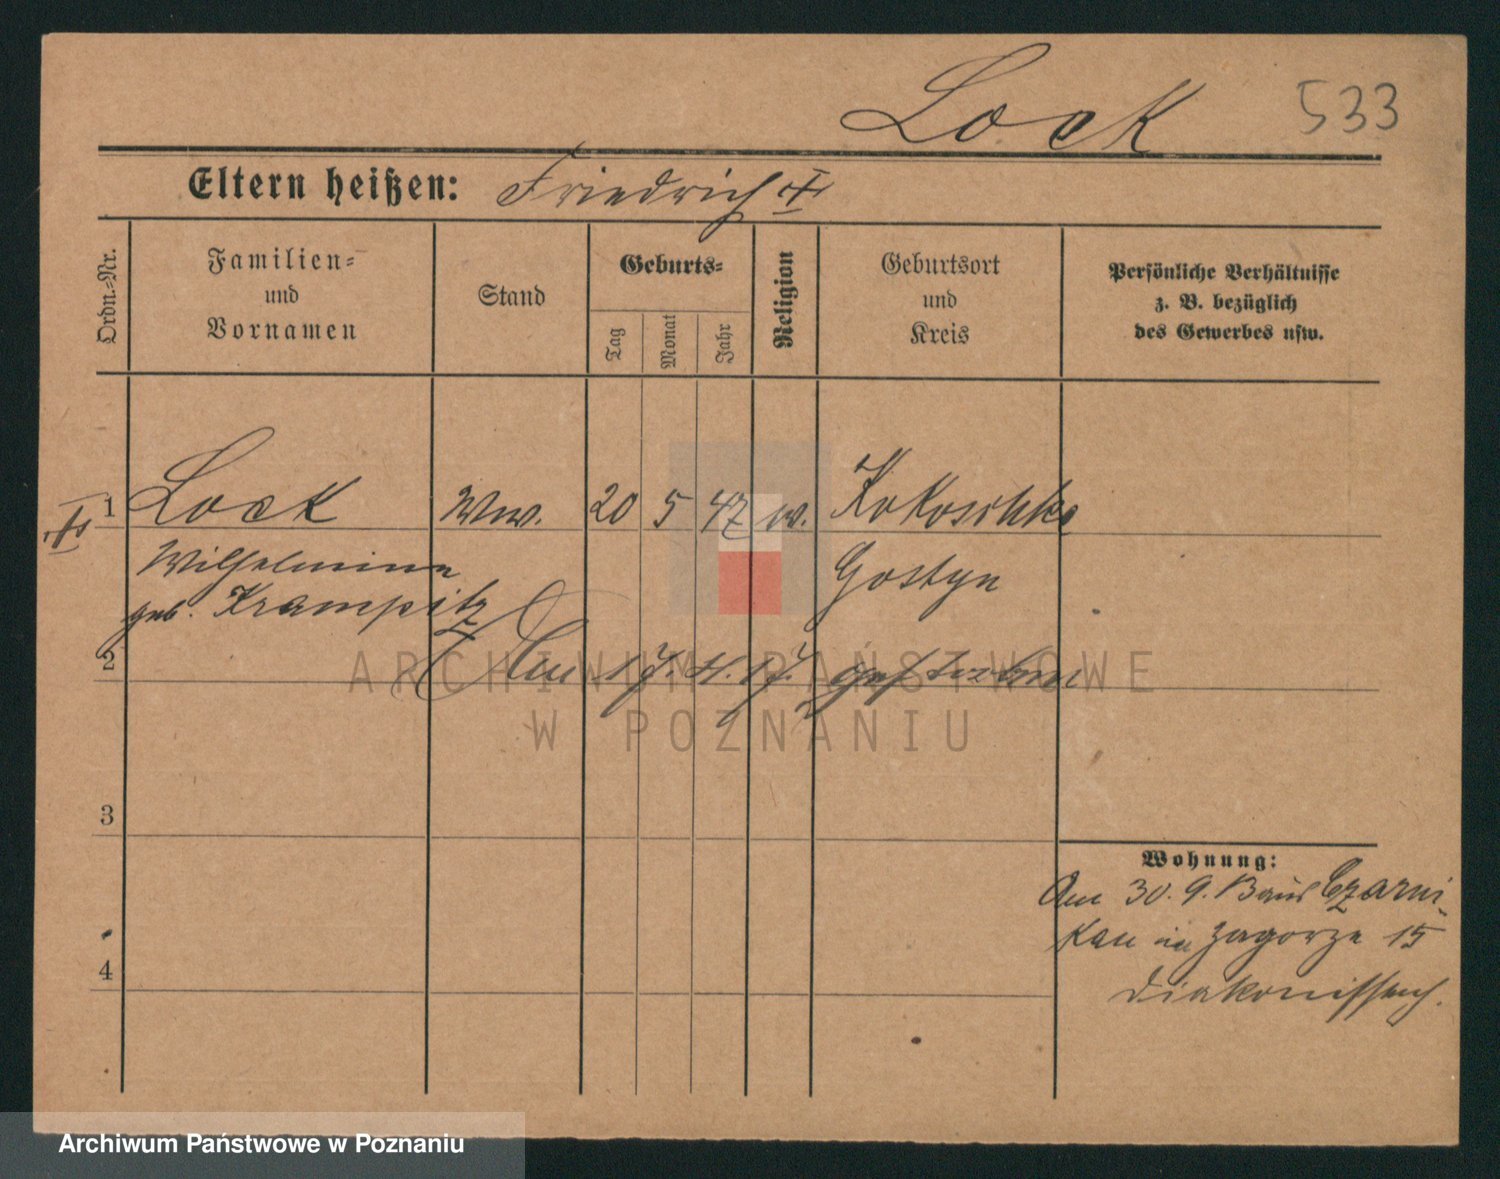 Lock 533
Eltern heißen: Friedrich
Ordn.=Nr.
Familien=
und
Vornamen
Stand
Geburts=
Tag
Monat
Jahr
Religion
Geburtsort
und
Kreis
Persönliche Verhältnisse
z. B. bezüglich
des Gewerbes usw.
1 Lock Ww. 20 5 47 ev. Kokoschke
Wilhelmine Gostyn
geb. Krampitz
2 Am 17. 4. 17. gestorben
3
4
Wohnung:
Am 30. 9. 13 aus Czarni-
kau in Zagorze 15
Diakonissenh.
ARCHIWUM PAŃSTWOWE
W POZNANIU
Archiwum Państwowe w Poznaniu